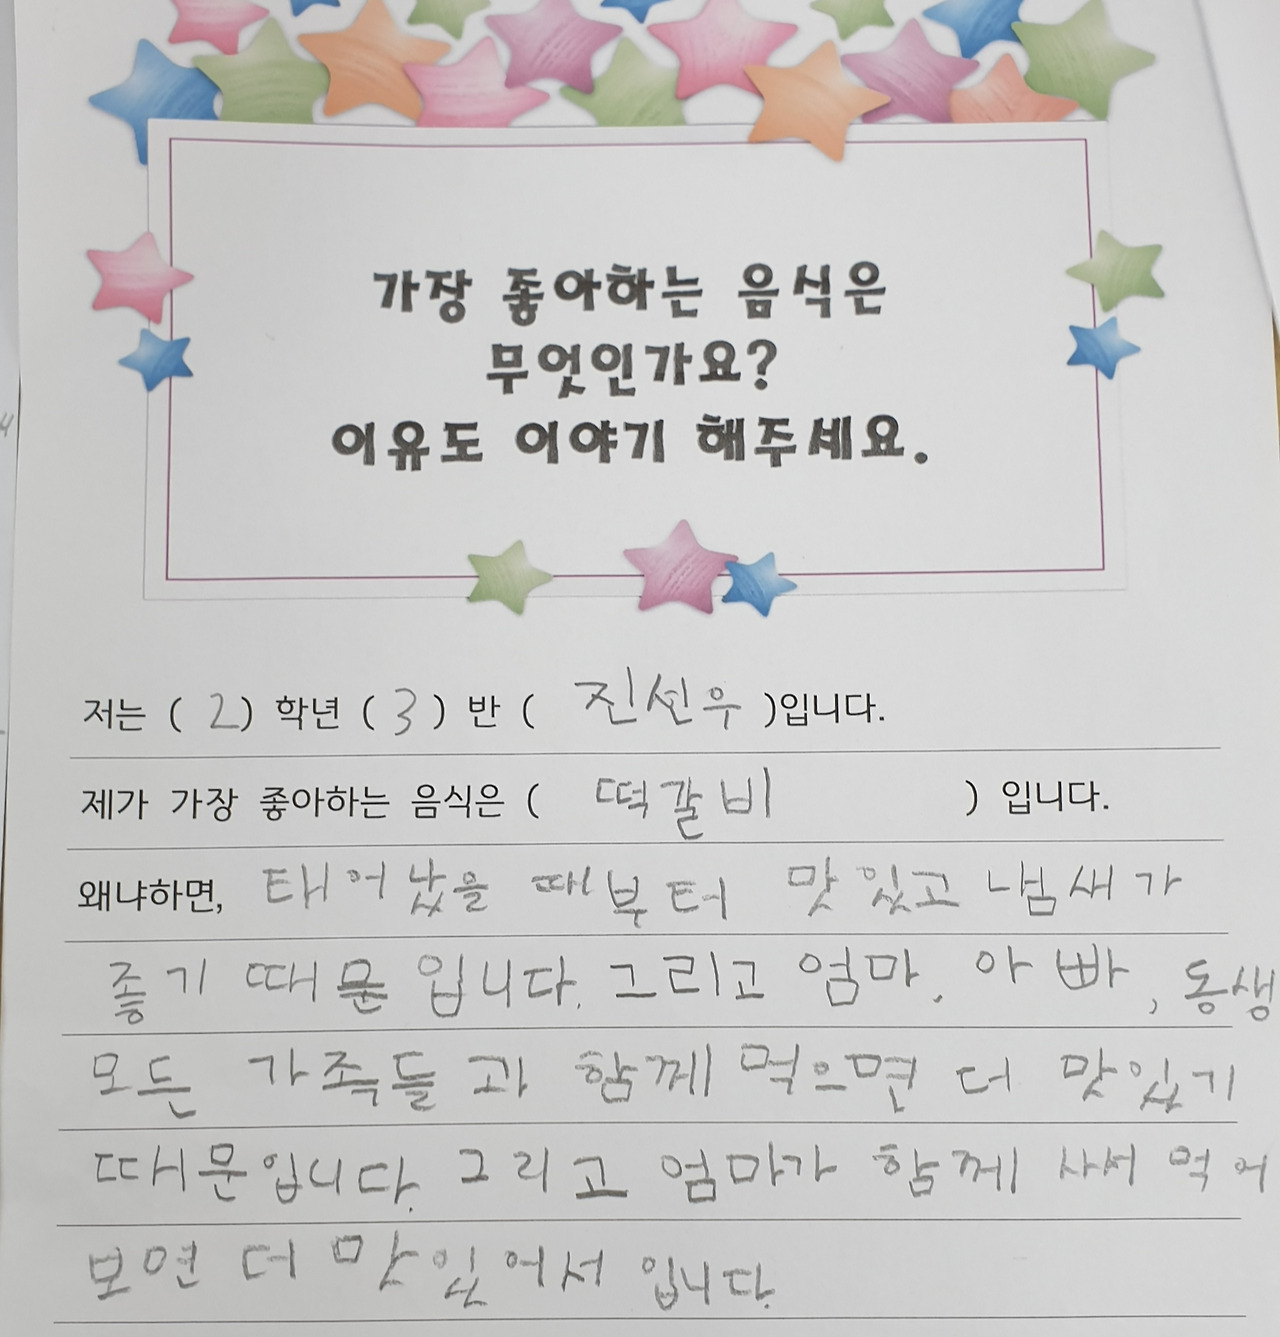 가장 좋아하는 음식은
무엇인가요?
이유도 이야기 해주세요.
저는 ( 2 ) 학년 ( 3 ) 반 ( 진선우 )입니다.
제가 가장 좋아하는 음식은 ( 떡갈비 ) 입니다.
왜냐하면, 태어났을 때부터 맛있고 냄새가
좋기 때문입니다. 그리고 엄마, 아빠, 동생
모든 가족들과 함께 먹으면 더 맛있기
때문입니다. 그리고 엄마가 함께 사서 먹어
보면 더 맛있어서 입니다.